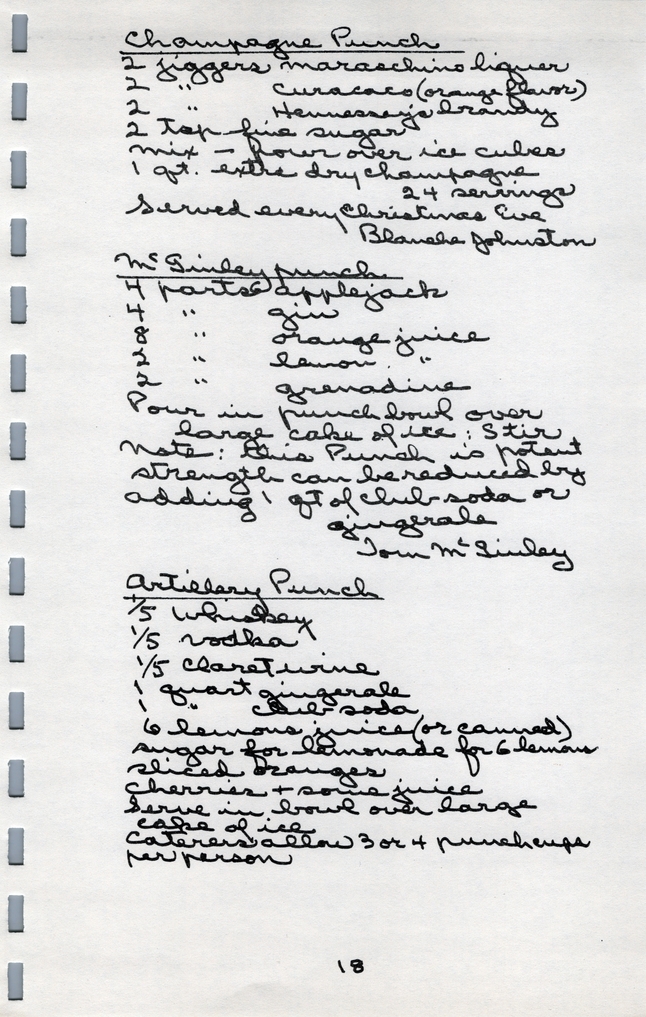 Champagne Punch
2 jiggers maraschino liquer
2 " Curacaco (orange flavor)
2 " Hennessey's brandy
2 tsp fine sugar
mix - pour over ice cubes
1 qt. extra dry champagne
24 servings
Served every Christmas Eve
Blanche Johnston
Mc Ginley punch
4 parts applejack
4 " gin
8 " orange juice
2 " lemon "
2 " grenadine
Pour in punch bowl over
large cake of ice; Stir
Note: this Punch is potent
strength can be reduced by
adding 1 qt of club soda or
gingerale
Tom Mc Ginley
Artillery Punch
1/5 whiskey
1/5 vodka
1/5 claret wine
1 quart gingerale
1 " club-soda
6 lemons juice (or canned)
sugar for lemonade for 6 lemons
sliced oranges
cherries + some juice
Serve in bowl over large
cake of ice
Caterers allow 3 or 4 punch cups
per person
18